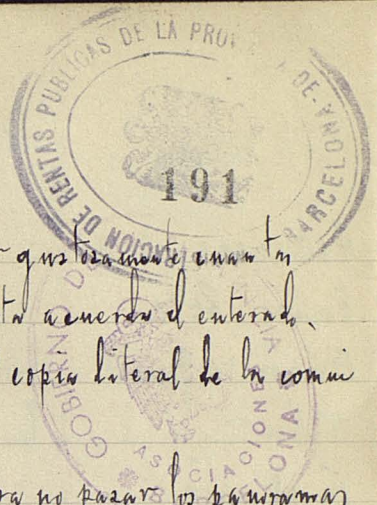 ADMINISTRACION DE RENTAS PUBLICAS DE LA PROVINCIA DE BARCELONA
191
gustosamente cuantas
ta acuerda el enterado.
copia literal de la comuni
GOBIERNO DE
ASOCIACIONES
BARCELONA
ra no pasar los panoramas